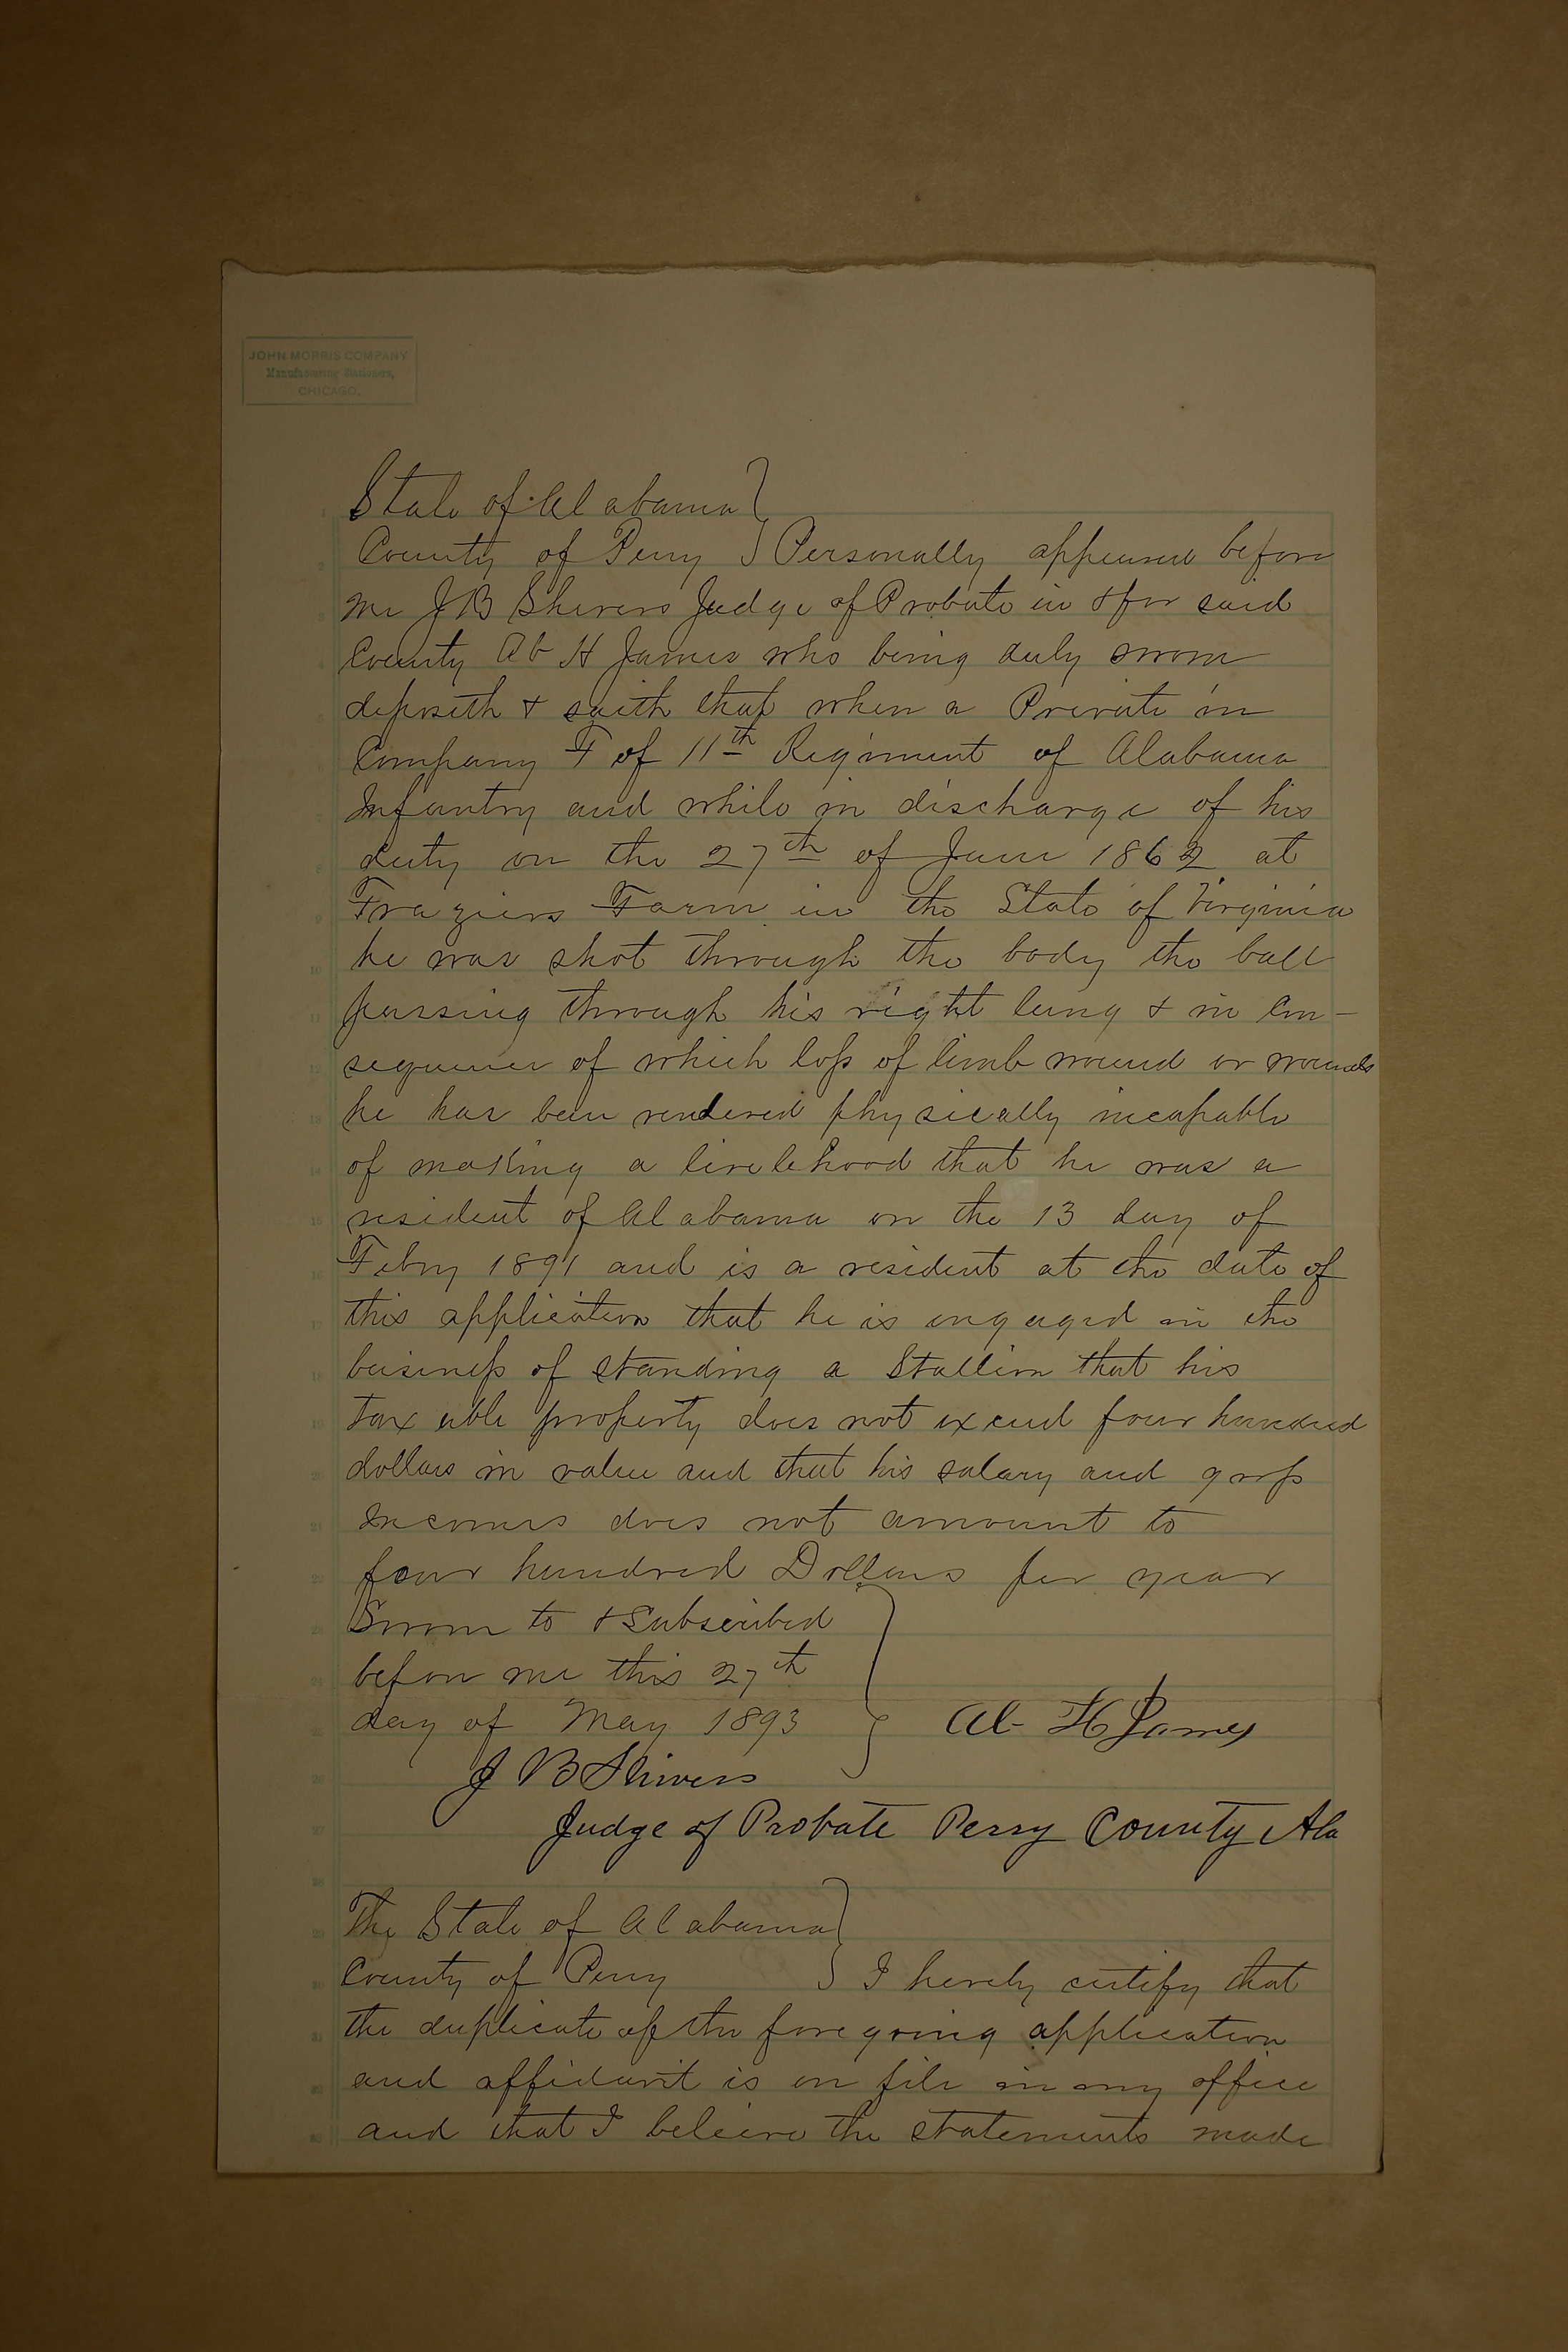 JOHN MORRIS COMPANY
Manufacturing Stationers,
CHICAGO.
State of Alabama }
County of Perry } Personally appeared before
me J B Shivers Judge of Probate in & for said
County Ab H James who being duly sworn
deposeth & saith that when a Private in
Company F of 11th Regiment of Alabama
Infantry and while in discharge of his
duty on the 27th of June 1862 at
Fraziers Farm in the State of Virginia
he was shot through the body the ball
passing through his right lung & in con-
sequence of which loss of limb wound or wounds
he has been rendered physically incapable
of making a livelehood that he was a
resident of Alabama on the 13 day of
Febry 1891 and is a resident at the date of
this application that he is engaged in the
business of standing a Stallion that his
taxable property does not exceed four hundred
dollars in value and that his salary and gross
Incomes does not amount to
four hundred Dollars per year
Sworn to & Subscribed
before me this 27th
day of May 1893 } Ab H James
J B Shivers
Judge of Probate Perry County Ala
The State of Alabama }
County of Perry } I hereby certify that
the duplicate of the foregoing application
and affidavit is on file in my office
and that I beleive the statements made